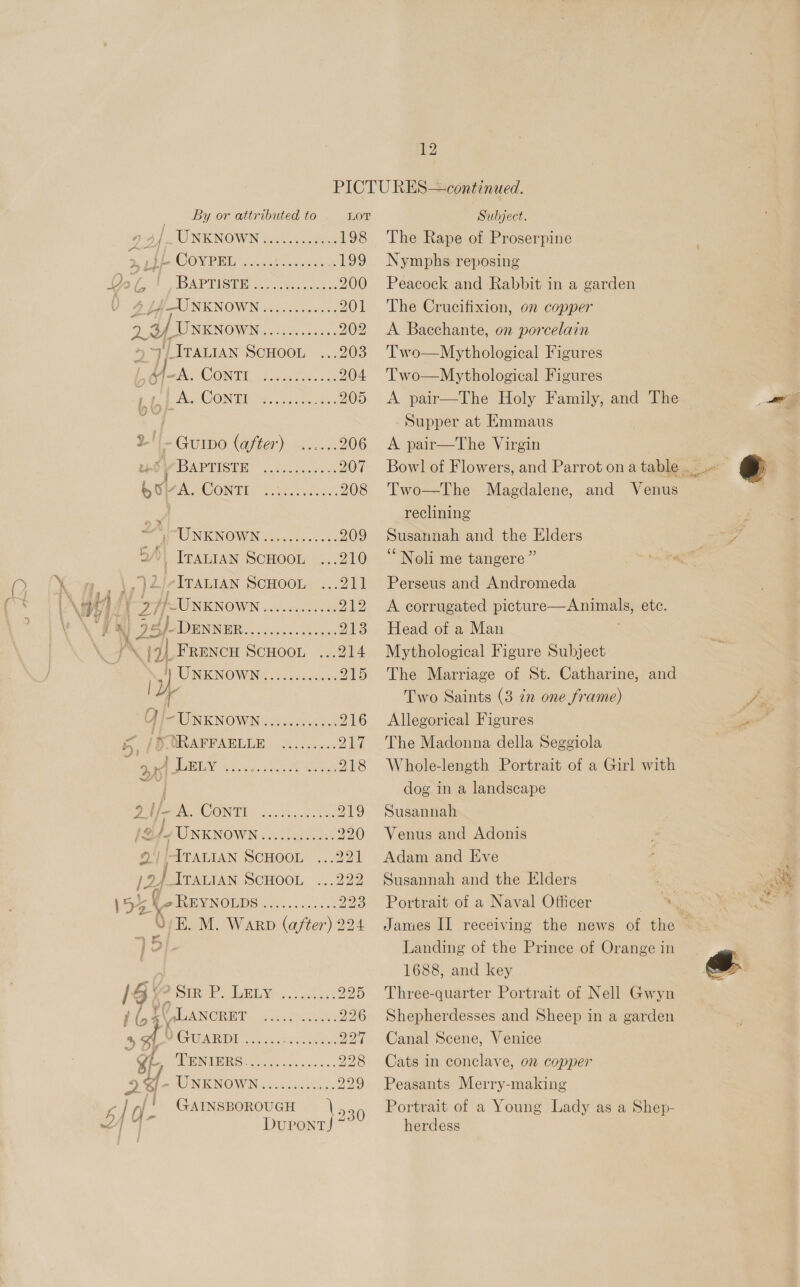 12
PICTURES—continued.
By or attributed to LOT Subject.
UNKNOWN ............ 198 The Rape of Proserpine
COYPEL ............ 199 Nymphs reposing
BAPTISTE ............ 200 Peacock and Rabbit in a garden
UNKNOWN ............ 201 The Crucifixion, on copper
UNKNOWN ............ 202 A Bacchante, on porcelain
ITALIAN SCHOOL ...203 Two—Mythological Figures
A. CONTI ............ 204 Two—Mythological Figures
A. CONTI ............ 205 A pair—The Holy Family, and The
Supper at Emmaus
GUIDO (after) ......206 A pair—The Virgin
BAPTISTE ............ 207 Bowl of Flowers, and Parrot on a table
A. CONTI ............ 208 Two—The Magdalene, and Venus
reclining
UNKNOWN ............ 209 Susannah and the Elders
ITALIAN SCHOOL ...210 “Noli me tangere”
ITALIAN SCHOOL ...211 Perseus and Andromeda
UNKNOWN ............ 212 A corrugated picture—Animals, etc.
DENNER ............ 213 Head of a Man
FRENCH SCHOOL ...214 Mythological Figure Subject
UNKNOWN ............ 215 The Marriage of St. Catharine, and
Two Saints (3 in one frame)
UNKNOWN ............ 216 Allegorical Figures
RAFFAELLE ......... 217 The Madonna della Seggiola
LELY ............ 218 Whole-length Portrait of a Girl with
dog in a landscape
A. CONTI ............ 219 Susannah
UNKNOWN ............ 220 Venus and Adonis
ITALIAN SCHOOL ...221 Adam and Eve
ITALIAN SCHOOL ...222 Susannah and the Elders
REYNOLDS ............ 223 Portrait of a Naval Officer
E. M. WARD (after) 224 James II receiving the news of the
Landing of the Prince of Orange in
1688, and key
SIR P. LELY ......... 225 Three-quarter Portrait of Nell Gwyn
LANCRET ............ 226 Shepherdesses and Sheep in a garden
GUARDI ............ 227 Canal Scene, Venice
TENIERS ............ 228 Cats in conclave, on copper
UNKNOWN ............ 229 Peasants Merry-making
GAINSBOROUGH DUPONT } 230 Portrait of a Young Lady as a Shep-
herdess